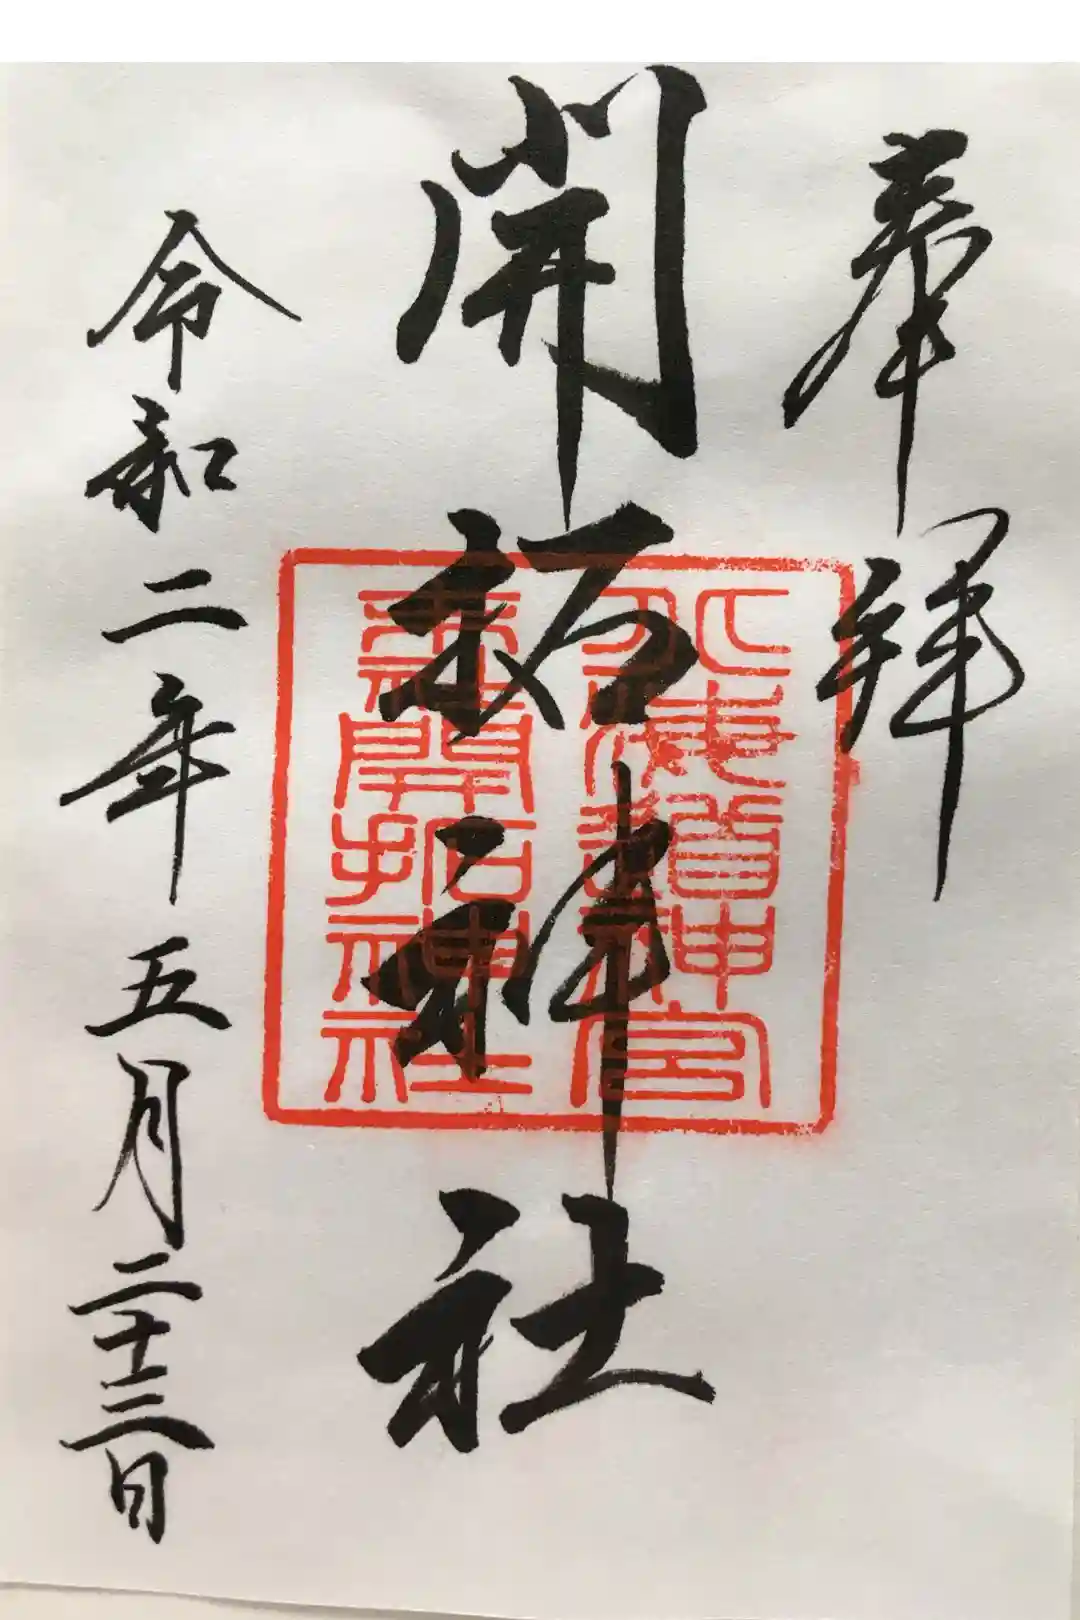 奉拝
開拓神社
北海道神宮
末社開拓神社
令和二年五月二十三日